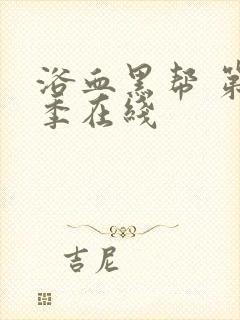 浴血黑帮 第
季在线
吉尼